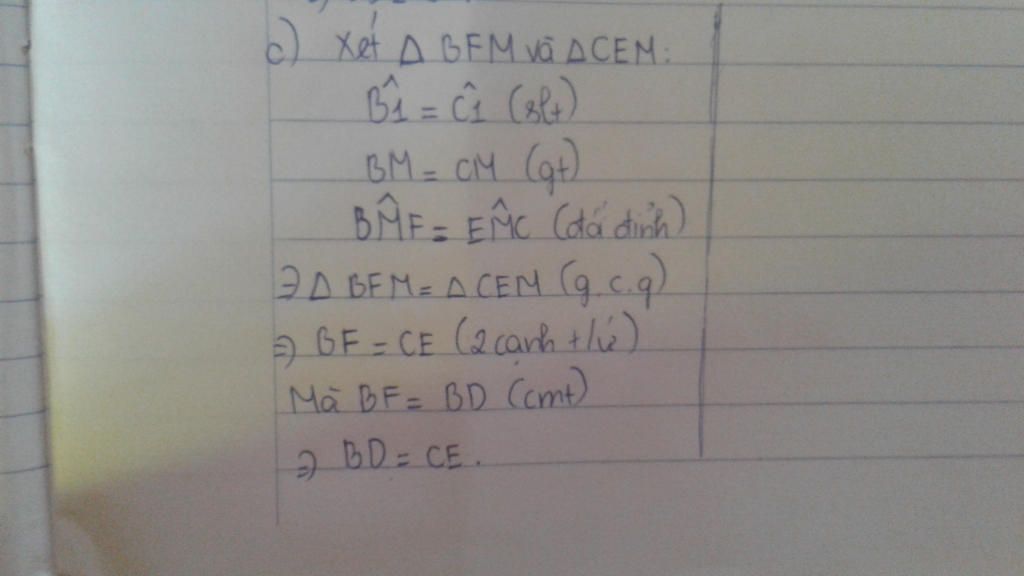 c) Xét Δ BFM và Δ CEM:
B̂1 = Ĉ1 (slt)
BM = CM (gt)
BM̂F = EM̂C (đđ đỉnh)
⇒ Δ BFM = Δ CEM (g.c.g)
⇒ BF = CE (2 cạnh t/ứ)
Mà BF = BD (cmt)
⇒ BD = CE.